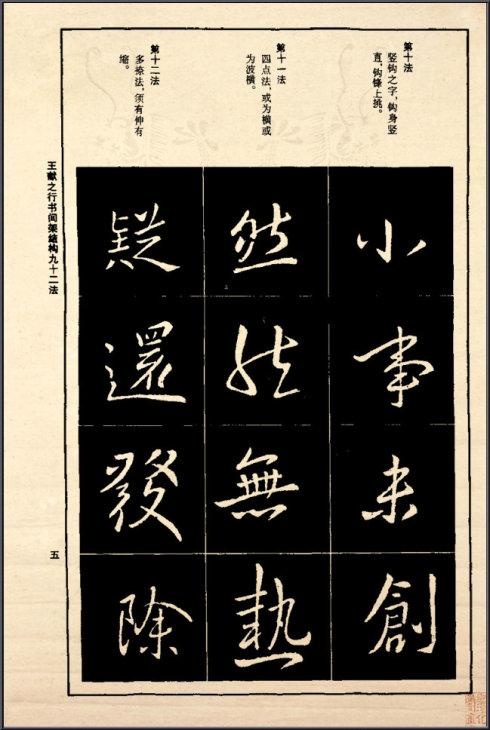 第十法
竖钩之字，钩身竖
直，钩锋上挑。
小
事
未
創
第十一法
四点法，或为横或
为波横。
然
然
無
熱
第十二法
多捺法，须有伸有
缩。
疑
還
發
除
王献之行书间架结构九十二法
五